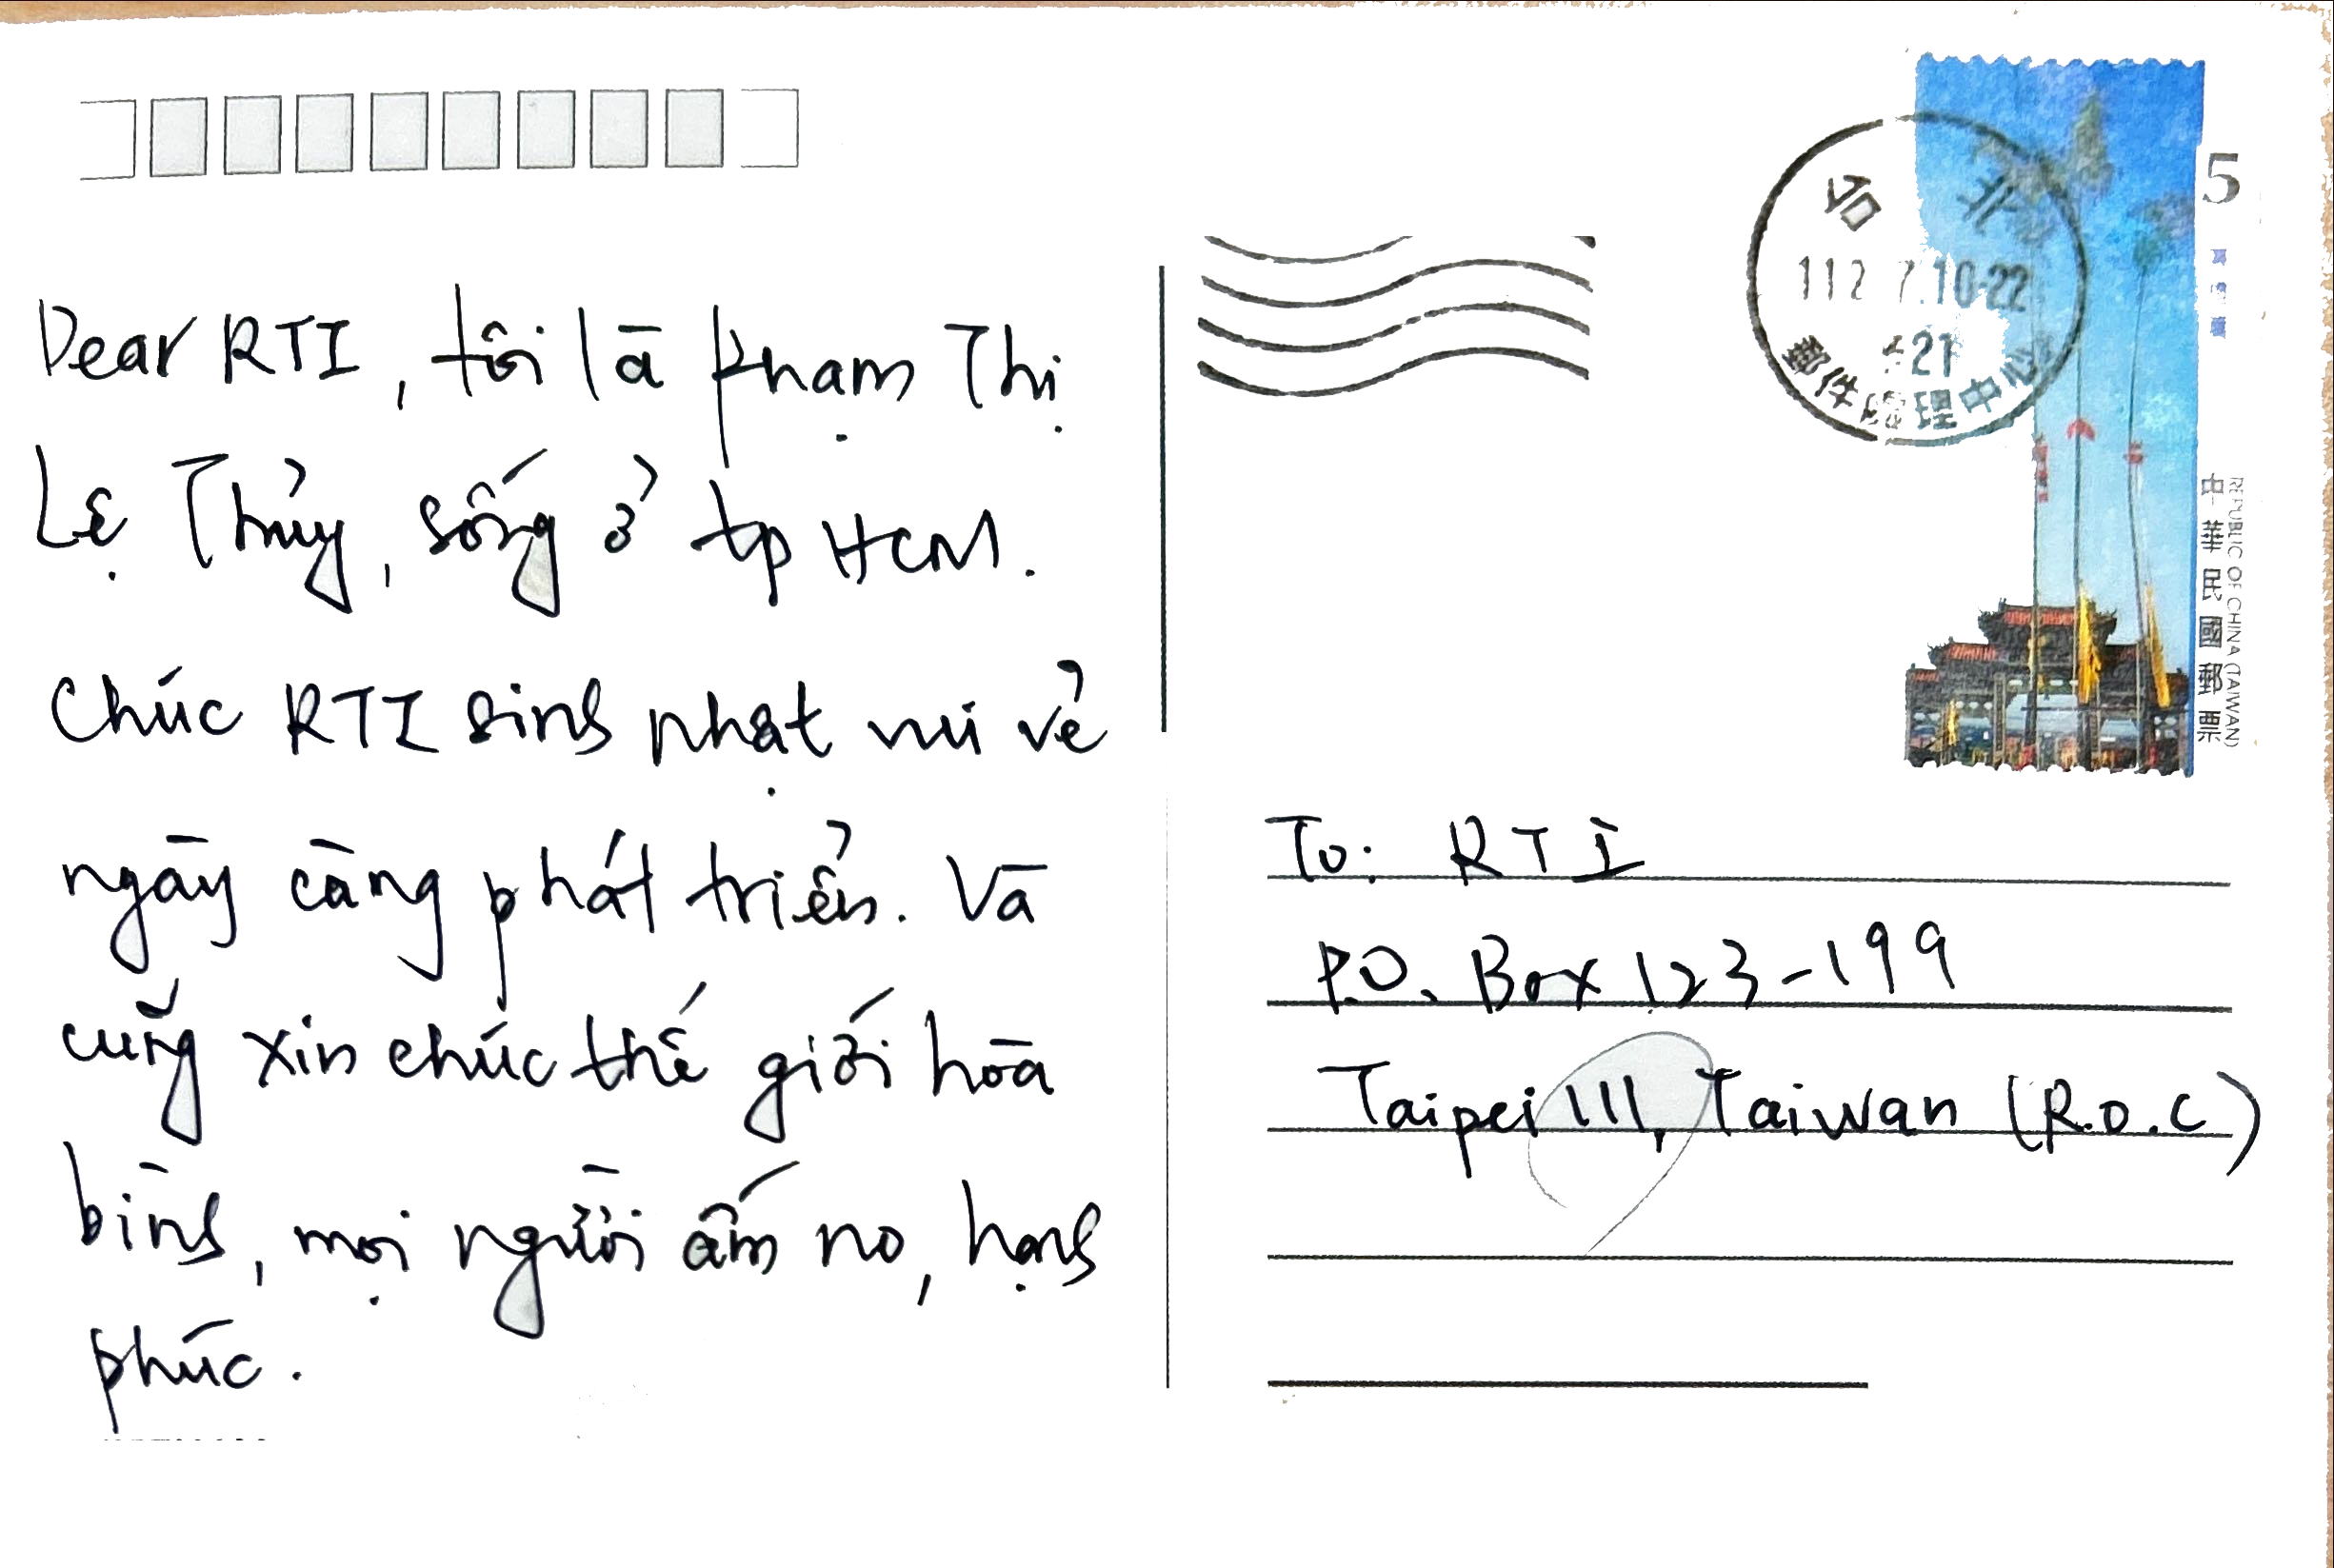 Dear RTI, tôi là Phạm Thị
Lệ Thủy, sống ở tp HCM.
Chúc RTI sinh nhật vui vẻ
ngày càng phát triển. Và
cũng xin chúc thế giới hòa
bình, mọi người ấm no, hạnh
phúc.
台北
112 7.10-22
郵件處理中心
5
中華民國郵票
REPUBLIC OF CHINA (TAIWAN)
To: RTI
P.O. Box 123-199
Taipei 111, Taiwan (R.O.C)